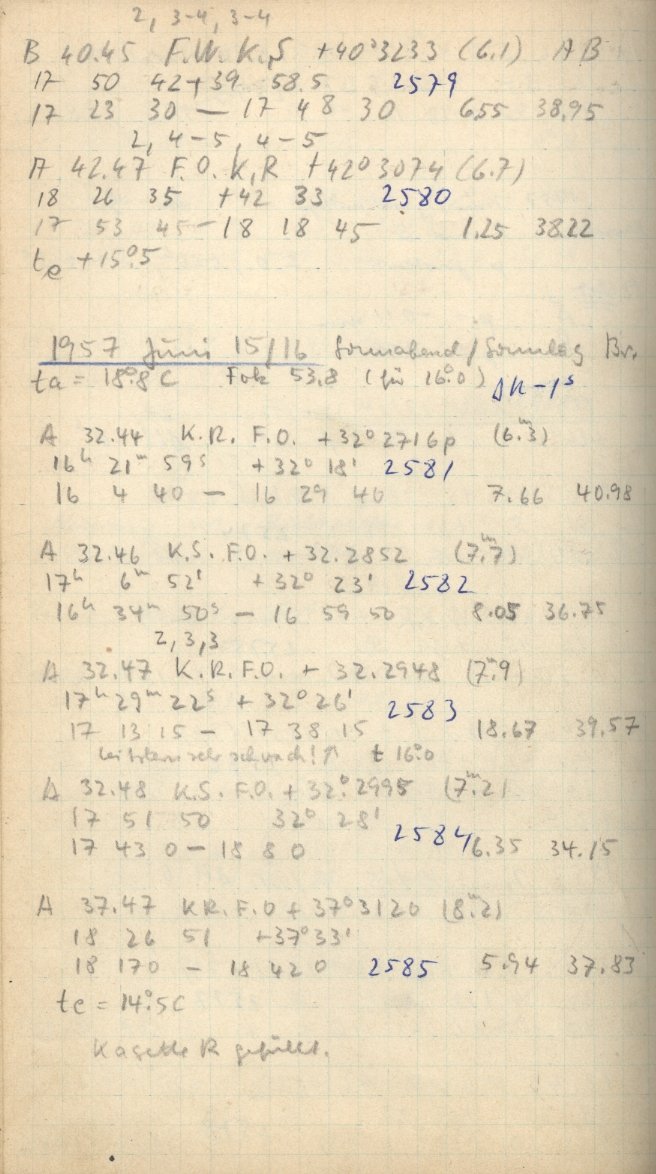 2, 3-4, 3-4
B 40.45 F.W. K.S +40°3233 (6.1) AB
17 50 42 +39 58.5 2579
17 23 30 — 17 48 30 6.55 38.95
2, 4-5, 4-5
A 42.47 F.O. K.R +42°3074 (6.7)
18 26 35 +42 33 2580
17 53 45 - 18 18 45 1.25 38.22
te +15°.5
1957 Juni 15/16 Sonnabend/Sonntag Br.
ta = 18°.8 C Fok 53.8 (für 16°.0) ΔU -1s
A 32.44 K.R. F.O. +32°2716p (6m.3)
16h 21m 59s +32° 18' 2581
16 4 40 — 16 29 40 7.66 40.98
A 32.46 K.S. F.O. +32.2852 (7m.7)
17h 6m 52' +32° 23' 2582
16h 34m 50s — 16 59 50 8.05 36.75
2,3,3
A 32.47 K.R. F.O. + 32.2948 (7m.9)
17h 29m 22s +32° 26' 2583
17 13 15 - 17 38 15 18.67 39.57
Leitstern sehr schwach! t 16°.0
A 32.48 K.S. F.O. + 32°.2995 (7m.2)
17 51 50 32° 28'
17 43 0 — 18 8 0 2584 6.35 34.15
A 37.47 K.R. F.O + 37°3120 (8m.2)
18 26 51 +37°33'
18 17 0 - 18 42 0 2585 5.94 37.83
te = 14°.5 C
Kasette R gefüllt.